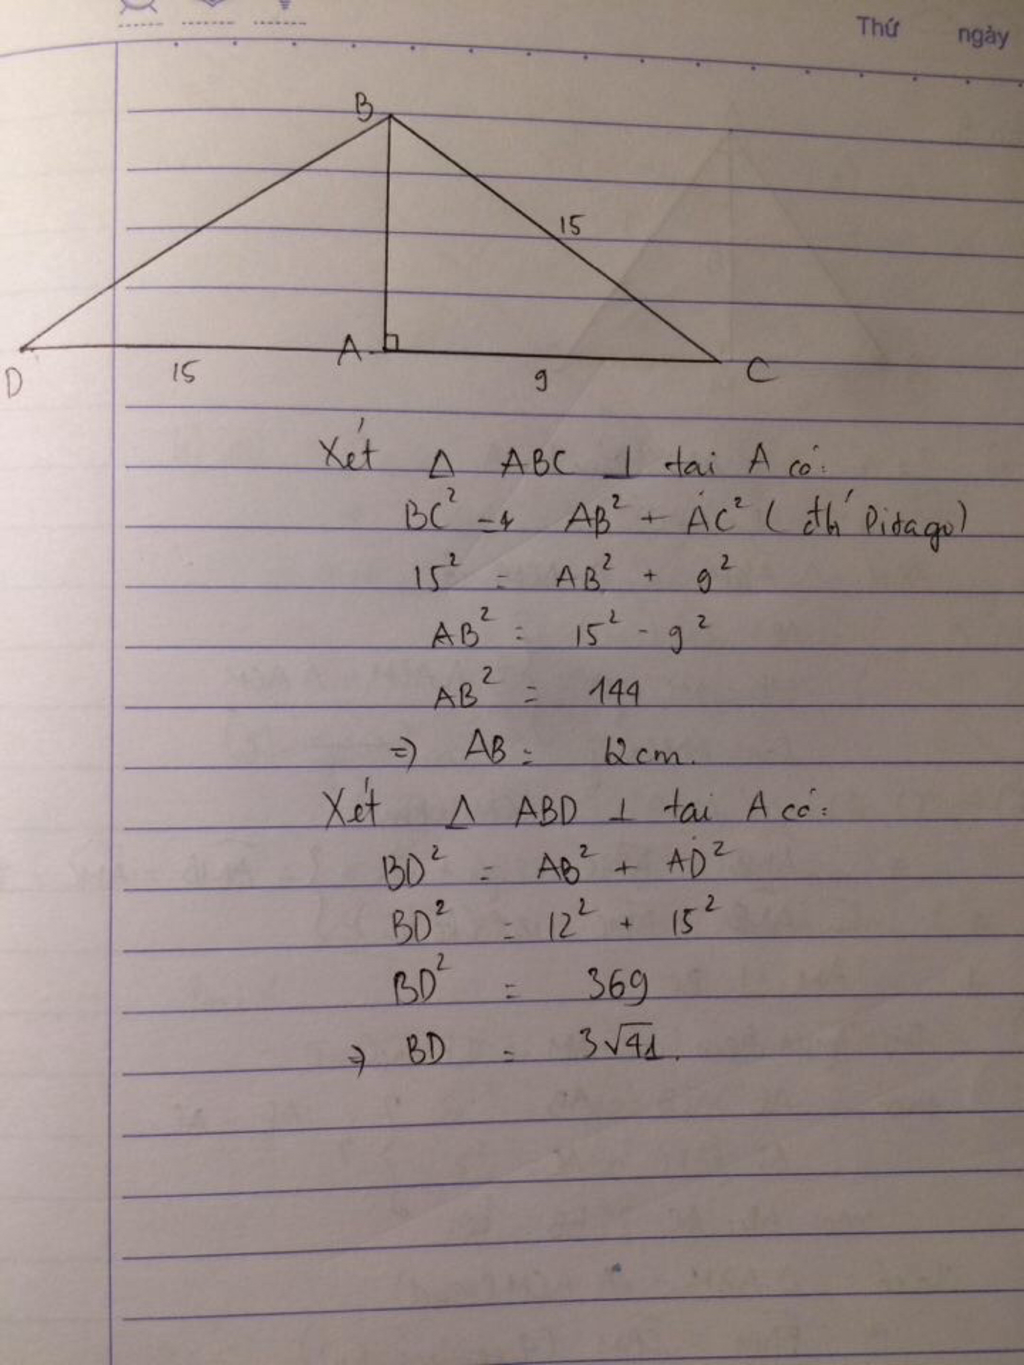 Thứ ngày
B
15
A
D
15
9
C
Xét Δ ABC ⊥ tại A có:
BC² = AB² + AC² (đlí Pitago)
15² = AB² + 9²
AB² = 15² - 9²
AB² = 144
=> AB = 12cm.
Xét Δ ABD ⊥ tại A có:
BD² = AB² + AD²
BD² = 12² + 15²
BD² = 369
=> BD = 3√41.